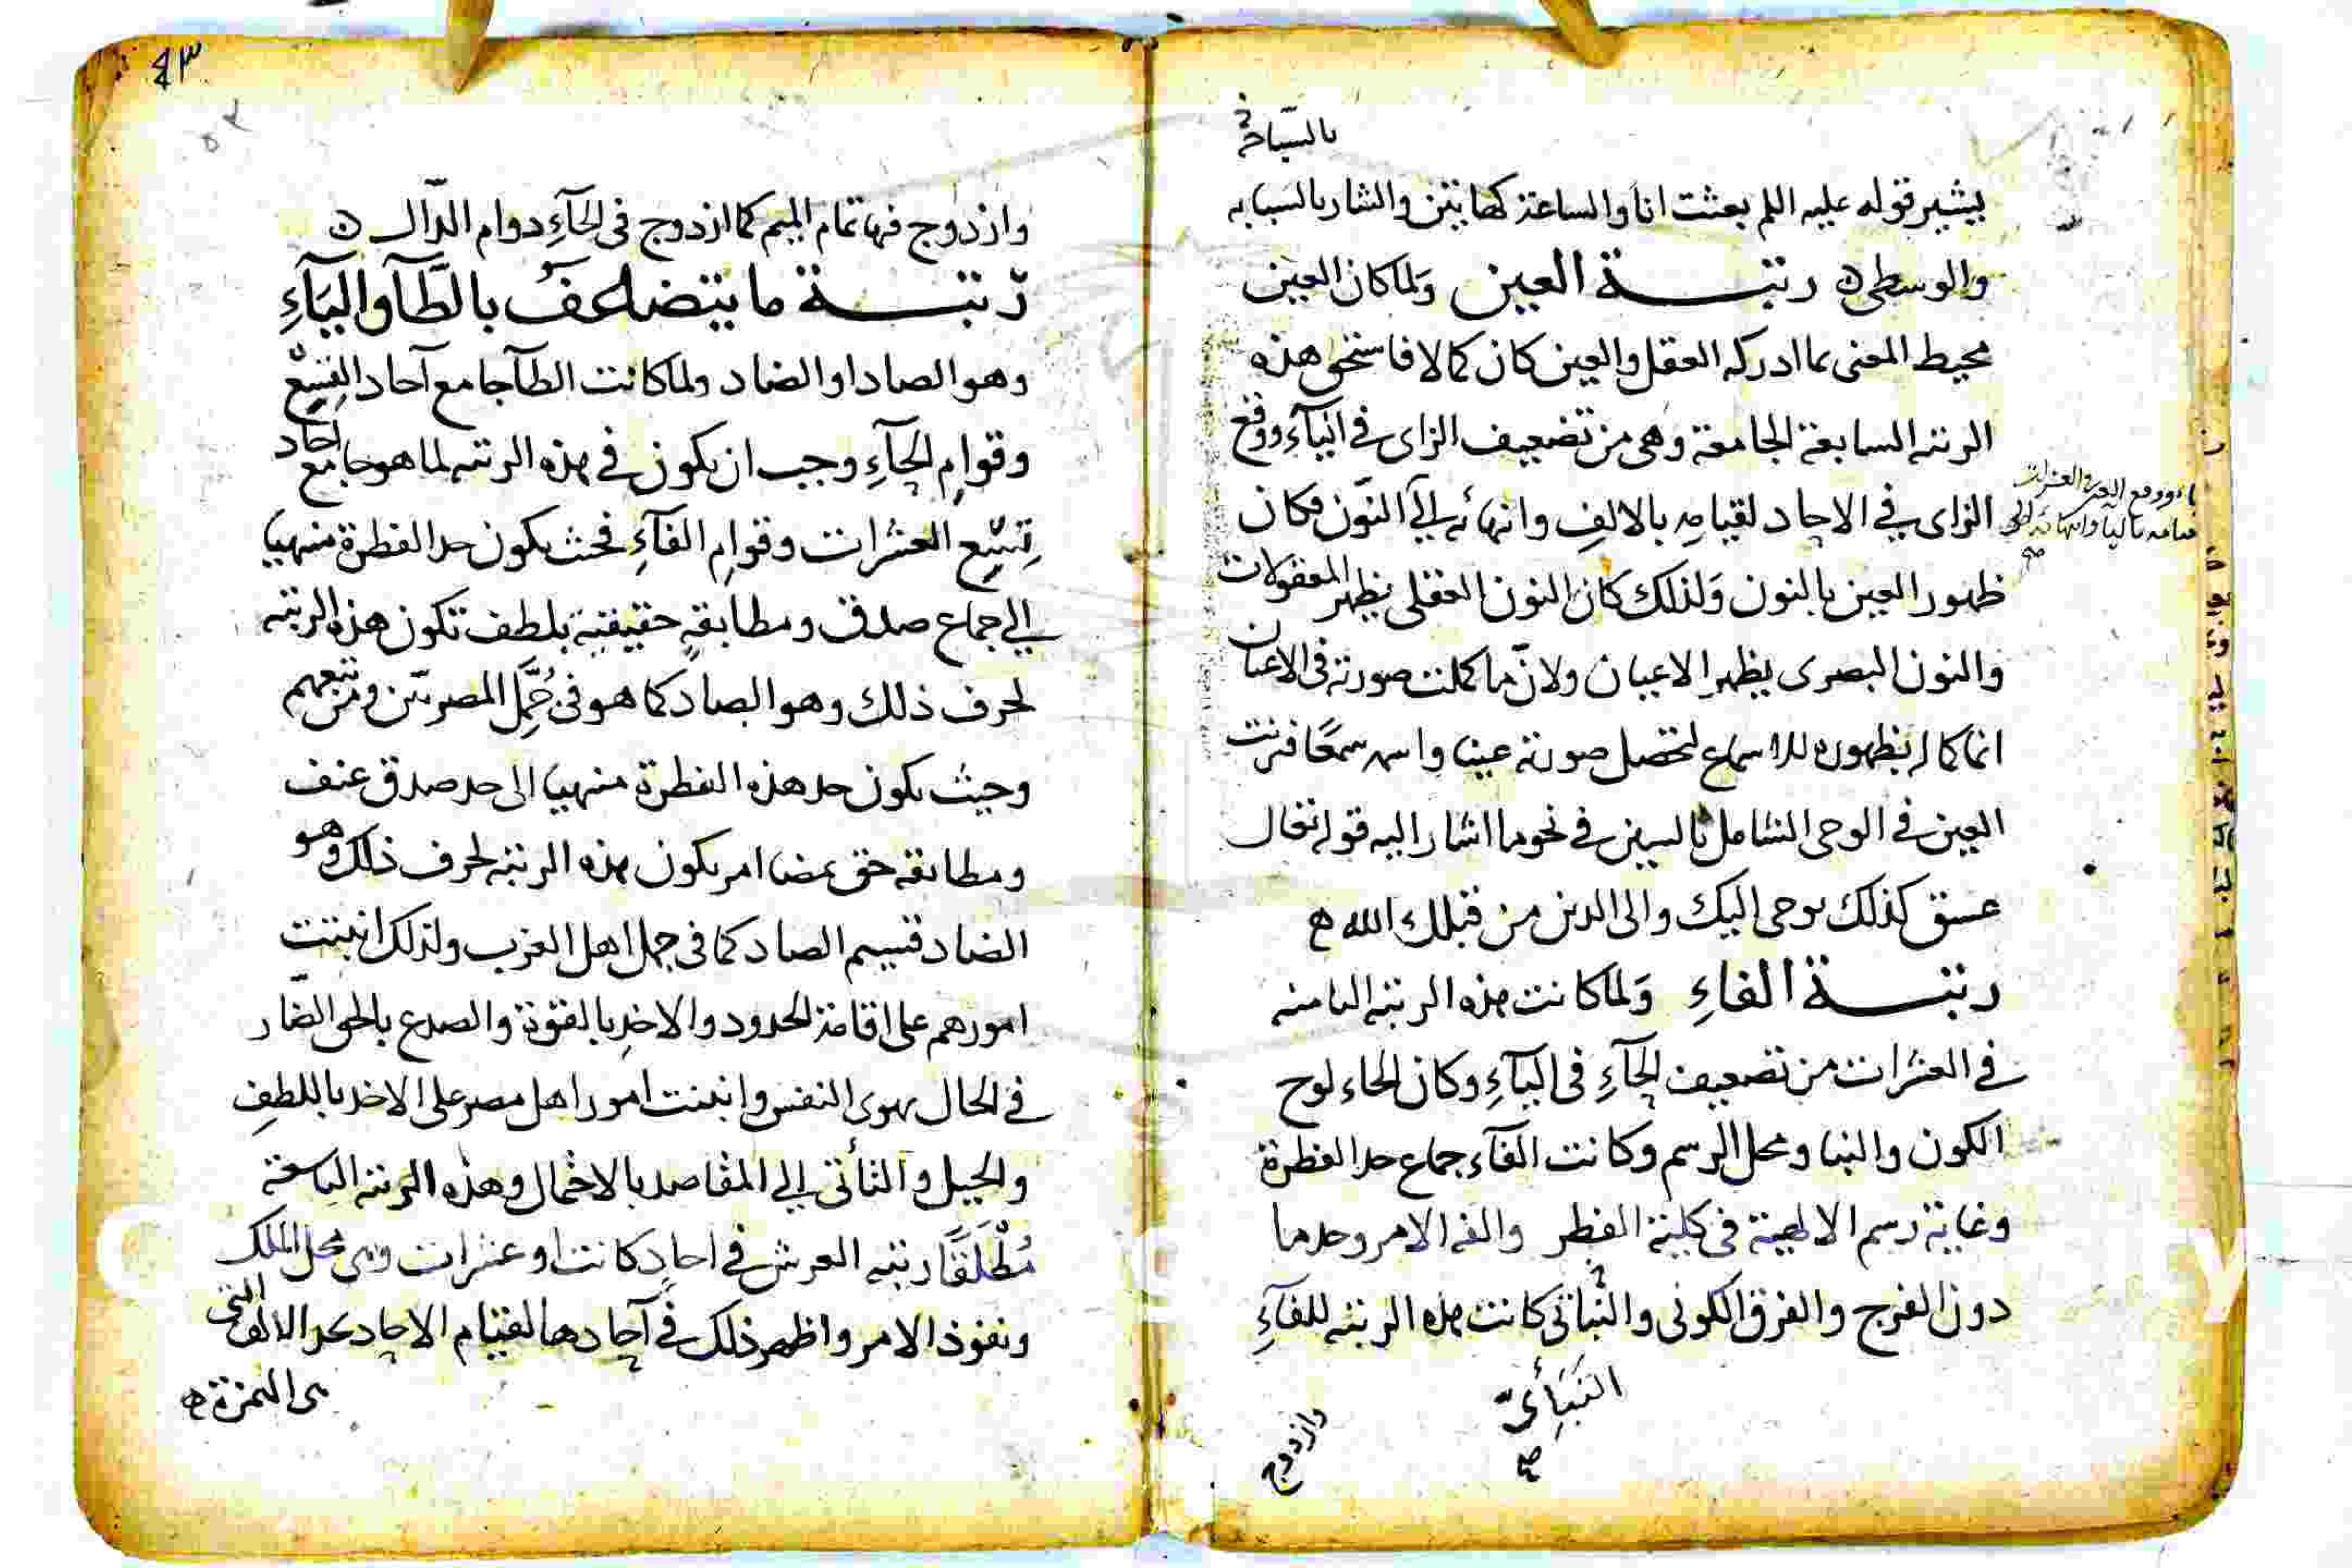 بالسباحة
يشير قوله عليه السلم بعثت انا والساعة كهاتين واشار بالسبابه
والوسطى ه رتبة العين ولما كان العين
محيط المعنى بما ادركه العقل والعين كان كمالا فاستحق هذه
الرتبه السابعة الجامعة وهى من تضعيف الزاى فى اليآء ووقع
الزاى فى الاحاد لقيامه بالالف وانهائه الى النون فكان
ظهور العين بالنون ولذلك كان النون العقلى يظهر المعقولات
والنون البصرى يظهر الاعيان ولان ما كملت صورته فى الاعيان
انما كماله بظهوره للاسماع لتحصل صورته عينا واسمه سمعا قرنت
العين فى الوحى الشامل بالسين فى نحو ما اشار اليه قوله تعالى
عسق كذلك يوحى اليك والى الذين من قبلك الله ه
رتبة الفاء ولما كانت هذه الرتبه الثامنه
فى العشرات من تضعيف الحآء فى اليآء وكان الحاء لوح
الكون والنبا ومحل الرسم وكانت الفآء جماع حد الفطرة
وغاية رسم الالهية فى كلية الفطر والفه الامر وحد ما
دون الفرج والفرق الكونى والنباتى كانت هذه الرتبه للفآء
النبائى
صح
وازدوج
٤٣
٥٣
وازدوج فيها تمام الميم كما ازدوج فى الحآء دوام الدال ه
رتبة ما يتضاعف بالطآ واليآء
وهو الصاد او الضاد ولما كانت الطآ جامع آحاد التسع
وقوام الحآء وجب ان يكون فى هذه الرتبه لما هو جامع احاد
تسع العشرات وقوام الفآء فحيث يكون حد الفطرة منهيا
الى جماع صدق ومطابقة حقيقية بلطف تكون هذه الرتبه
لحرف ذلك وهو الصاد كما هو فى جمل المصريين ومن تبعهم
وحيث يكون حد هذه الفطرة منهيا الى حد صدق عنف
ومطابقه حق بمضا امر يكون هذه الرتبه لحرف ذلك وهو
الضاد قسيم الصاد كما فى جمل اهل الغرب ولذلك انبنت
امورهم على اقامة الحدود والاخذ بالقوة والصدع بالحق الضار
فى الحال بهوى النفس وانبنت امور اهل مصر على الاخذ باللطف
والحيل والتأنى الى المقاصد بالاحمال وهذه الرتبه التاسعة
مطلقا رتبه العرش فى احاد كانت او عشرات وهى محل الملك
ونفوذ الامر واظهر ذلك فى آحادها لقيام الاحاد بحد الالف التى
هى الهمزة ه